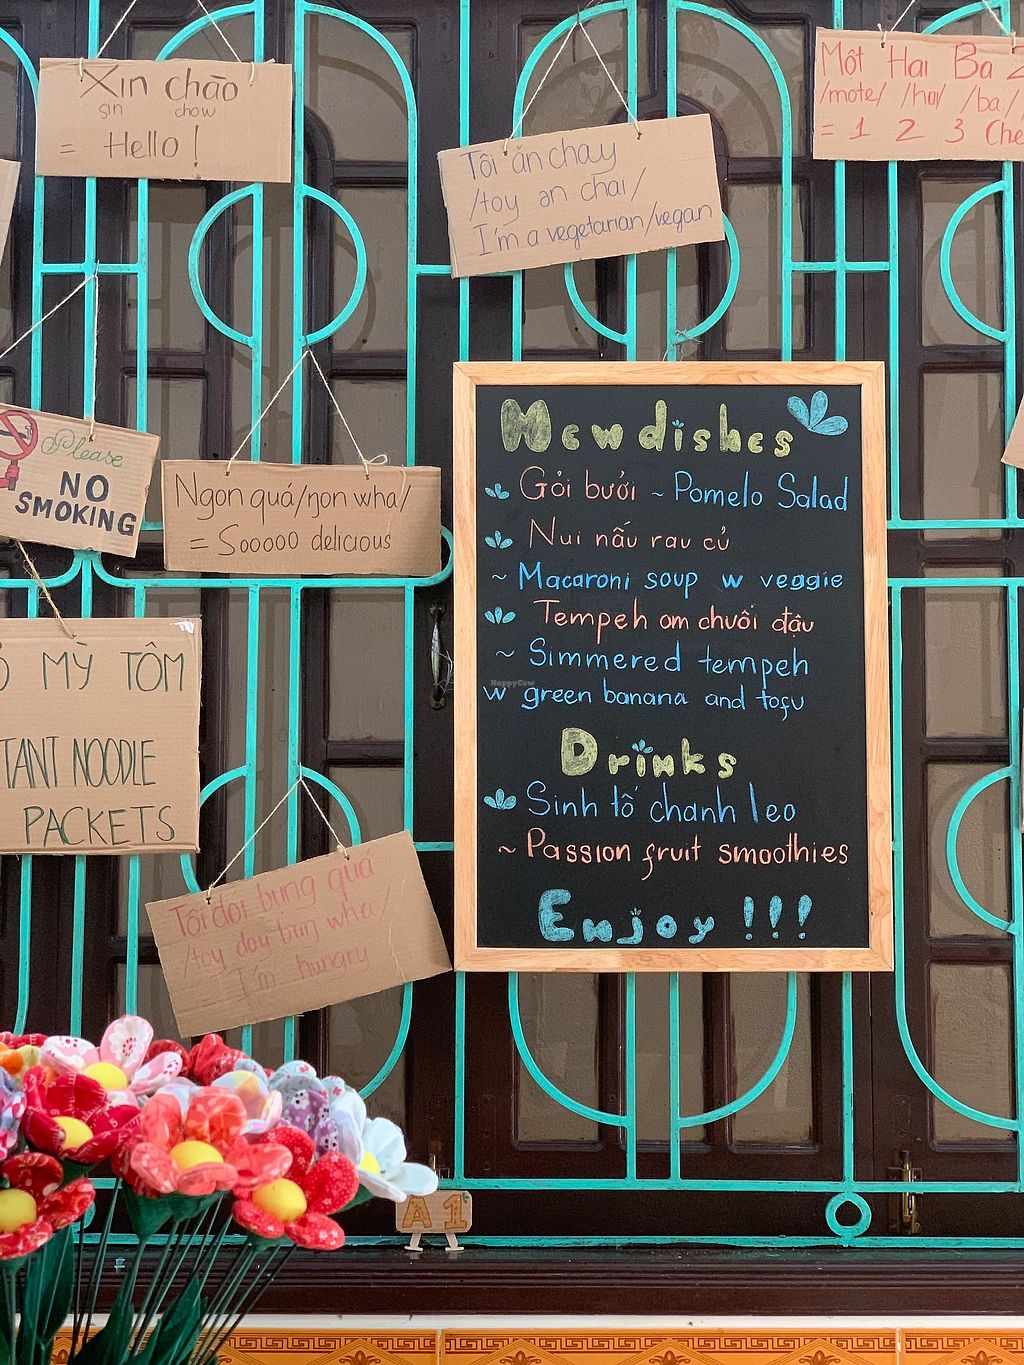 Xin chào
sin chow
= Hello!
Tôi ăn chay
/toy ən chai/
I'm a vegetarian/vegan
Một Hai Ba
/mote/ /hai/ /ba/
= 1 2 3
Please
NO
SMOKING
Ngon quá/ŋon wha/
= Sooooo delicious
MỲ TÔM
NOODLE
PACKETS
Tôi đói bụng quá
/toy doy bụŋ wha/
= I'm hungry
New dishes
Gỏi bưởi ~ Pomelo Salad
Nui nấu rau củ
~ Macaroni soup w veggie
Tempeh om chuối đậu
~ Simmered tempeh
w green banana and tofu
Drinks
Sinh tố chanh leo
~ Passion fruit smoothies
Enjoy !!!
A1
HappyCow